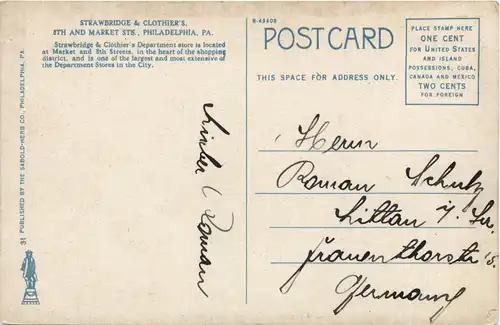 STRAWBRIDGE & CLOTHIER'S,
8TH AND MARKET STS., PHILADELPHIA, PA.
Strawbridge & Clothier's Department store is located
at Market and 8th Streets, in the heart of the shopping
district, and is one of the largest and most extensive of
the Department Stores in the City.
R-49608
POST CARD
THIS SPACE FOR ADDRESS ONLY.
PLACE STAMP HERE
ONE CENT
FOR UNITED STATES
AND ISLAND
POSSESSIONS, CUBA,
CANADA AND MEXICO
TWO CENTS
FOR FOREIGN
31 PUBLISHED BY THE SABOLD-HERB CO., PHILADELPHIA, PA.
Lieber Roman
Herrn
Roman Schulz
Zittau i/ Sa.
Frauenthorstr 15.
Germany